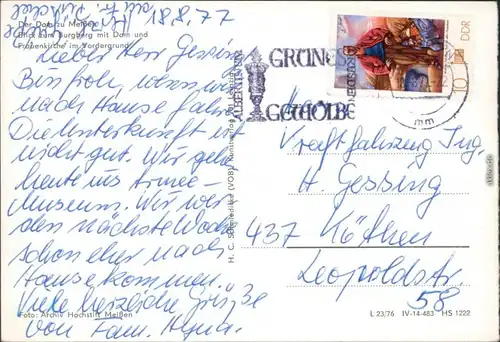 Der Dom zu Meißen
Blick zum Burgberg mit Dom und
Frauenkirche im Vordergrund
Lieber Herr Gessing
Bin froh, wenn wir
nach Hause fahren
Die Unterkunft ist
nicht gut. Wir gehen
heute ins Armee-
Museum. Wir
den nächste Woche
schon eher nach
Hause kommen.
Viele herzliche Grüße
von Fam.
Foto: Archiv Hochstift Meißen
H. C. Schmiedicke (VOB) Kunstverlag
GRÜNES
GEWÖLBE
10 DDR
Kraftfahrzeug Ing.
H. Gessing
437 Köthen
Leopoldstr.
58
L 23/76 IV-14-483 HS 1222